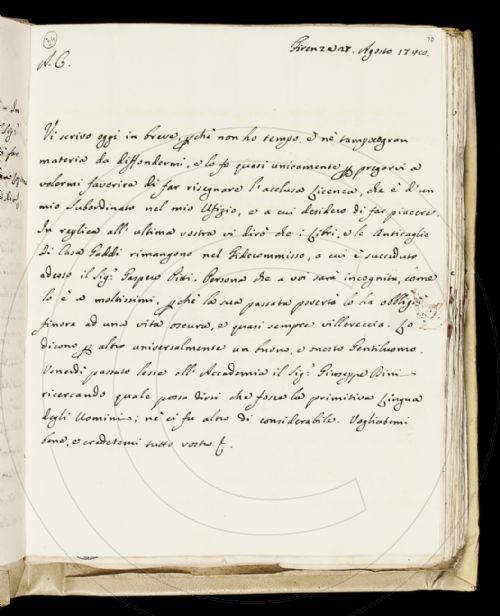 34
70
Firenze 27. Agosto 1740.
A. C.
Vi scrivo oggi in breve, p chè non ho tempo, e nè tampoco gran
materia da diffondermi, e lo fo quasi unicamente p pregarvi a
volermi favorire di far risegnare l'acclusa Licenza, che è d'un
mio Subordinato nel mio Ufizio, e a cui desidero di far piacere.
In replica all' ultima vostra vi dirò che i Libri, e le Anticaglie
di Casa Gaddi rimangono nel Fidecommisso, a cui è succeduto
adesso il Sig. Gaspero Pitti, Persona che a voi sarà incognita, come
lo è a moltissimi, p chè la sua passata povertà lo ha obblig
finora ad una vita oscura, e quasi sempre villereccia. Lo
dicono p altro universalmente un buono, e onesto Gentiluomo.
Venerdì passato lesse all' Accademia il Sig. Giuseppe Bini
ricercando quale possa dirsi che fosse la primitiva Lingua
degli Uomini; nè ci fu altro di considerabile. Vogliatemi
bene, e credetemi tutto vostro F.